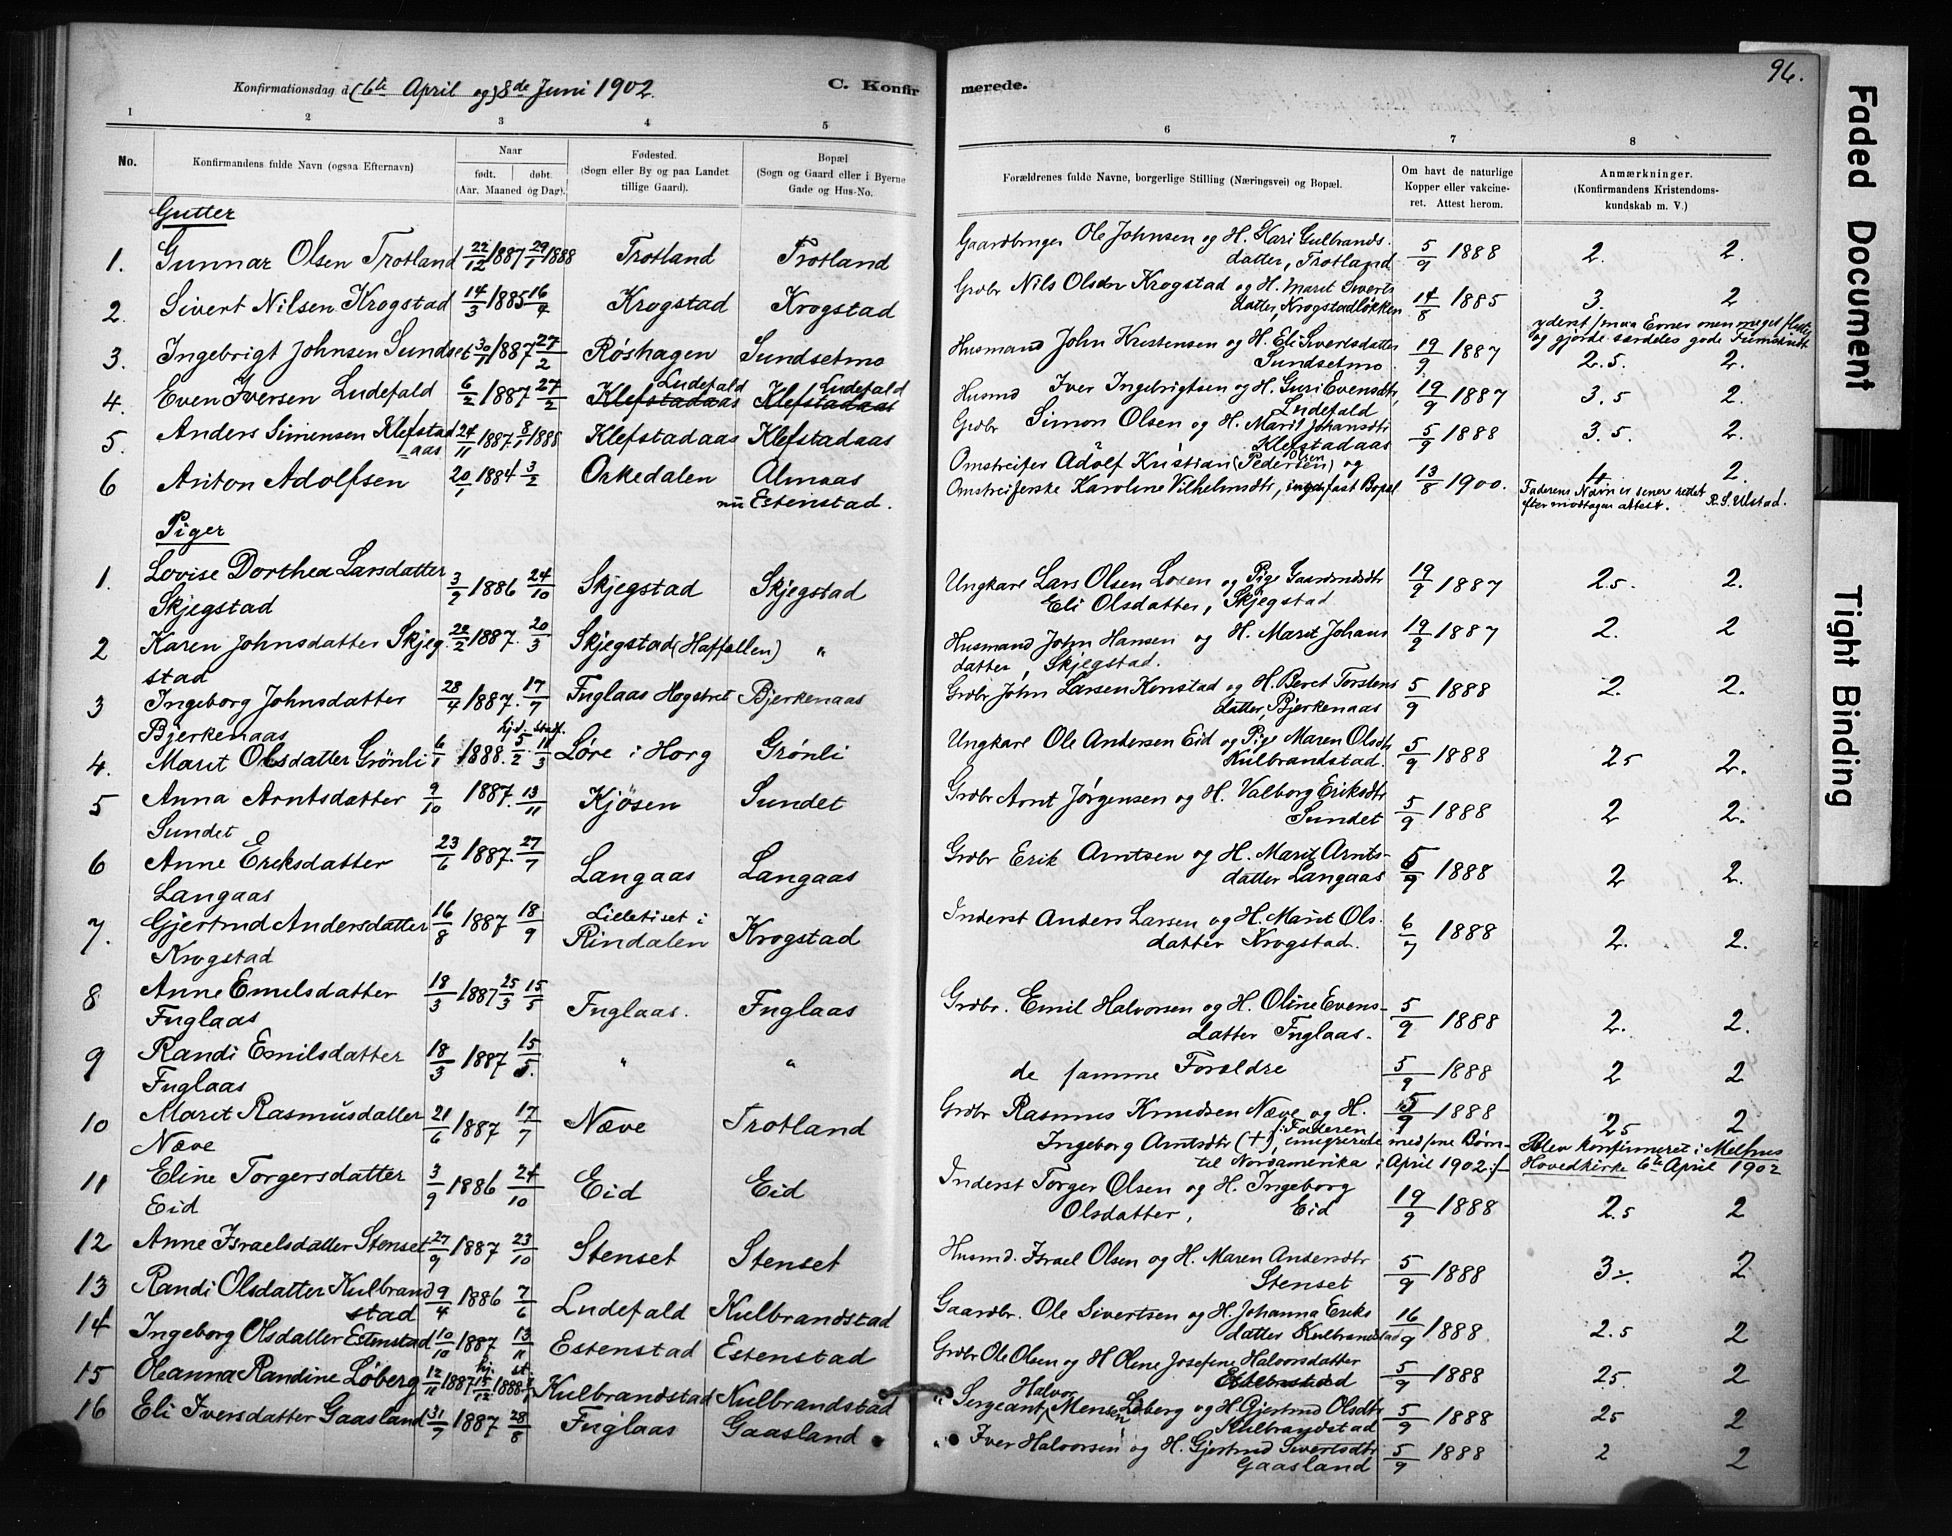 96.
Konfirmationsdag d. (6te April og) 8de Juni 1902.
C. Konfirmerede.
1 2 3 4 5 6 7 8
No.
Konfirmandens fulde Navn (ogsaa Efternavn)
Naar
født. døbt.
(Aar, Maaned og Dag).
Fødested.
(Sogn eller By og paa Landet
tillige Gaard).
Bopæl
(Sogn og Gaard eller i Byerne
Gade og Hus-No.
Forældrenes fulde Navne, borgerlige Stilling (Næringsvei) og Bopæl.
Om havt de naturlige
Kopper eller vakcine-
ret. Attest herom.
Anmærkninger.
(Konfirmandens Kristendoms-
kundskab m. V.)
Gutter
1. Gunnar Olsen Trotland 22/12 1887 29/1 1888 Trotland Trotland Gaardbruger Ole Johnsen og H. Kari Gulbrands-
datter, Trotland 5/9 1888 2. 2.
2. Sivert Nilsen Krogstad 14/3 1885 16/4 Krogstad Krogstad Grdbr Nils Olsen Krogstad og H. Marit Siverts
datter, Krogstadløkken 14/8 1885 3. 2
og gjorde særdeles gode
3. Ingebrigt Johnsen Sundset 30/11 1887 27/2 Røshagen Sundsetmo Husmand John Kristensen og H. Eli Sivertsdatter
Sundsetmo 19/9 1887 2.5. 2.
4. Even Iversen Ludefald 6/2 1887 27/2 Klefstadaas Ludefald Klefstadaas Ludefald Husmd Iver Ingebrigtsen og H. Guri Evensdtr,
Ludefald 19/9 1887 3.5 2.
5. Anders Simensen Klefstad
aas 24/11 1887. 8/1 1888 Klefstadaas Klefstadaas Grdbr Simon Olsen og H. Marit Johansdtr
Klefstadaas 5/9 1888 3.5. 2.
6 Anton Adolfsen 20/1 1884 3/2 Orkedalen Almaas
nu Estenstad. Omstreifer Adolf Kristian (Pedersen) Olsen og
Omstreiferske Karoline Vilhelmsdtr, fast Bopæl 13/8 1900. 4. 2.
Faderens Navn er senere rettet
efter modtagen attest. R. S. Ulstad.
Piger
1. Lovise Dorthea Larsdatter
Skjegstad 3/2 1886 24/10 Skjegstad Skjegstad Ungkarl Lars Olsen Losen og Pige Gaardmdsdtr
Eli Olsdatter, Skjegstad 19/9 1887 2.5. 2.
2 Karen Johnsdatter Skjeg-
stad 20/2 1887. 20/3 Skjegstad (Haffallen) " Husmand John Hansen og H. Marit Johans
datter, Skjegstad. 19/9 1887 2. 2
3 Ingeborg Johnsdatter
Bjerkenaas 28/4 1887. 17/7 Fuglaas Hogstret Bjerkenaas Grdbr John Larsen Kenstad og H. Beret Torstens
datter, Bjerkenaas 5/9 1888 2. 2.
4. Marit Olsdatter Grönli 6/1 1888. hjd. 5/2 stadf. 11/3 Löre i Horg Grönli Ungkarl Ole Andersen Eid og Pige Maren Olsdtr
Kulbrandstad. 5/9 1888 25 2.
5 Anna Arntsdatter
Sundet 9/10 1887. 13/11 Kjösen Sundet Grdbr Arnt Jørgensen og H. Valborg Eriksdtr
Sundet 5/9 1888 2 2.
6 Anne Eriksdatter
Langaas 23/6 1887. 27/7 Langaas Langaas Grdbr Erik Arntsen og H. Marit Arnts-
datter Langaas 5/9 1888 2 2.
7. Gjertrud Andersdatter
Krogstad 16/8 1887 18/9 Lilletiset i
Rindalen Krogstad Inderst Anders Larsen og H. Marit Ols-
datter Krogstad. 6/7 1888 2. 2.
8 Anne Emilsdatter
Fuglaas 18/3 1887 25/3 15/5 Fuglaas. Fuglaas Grdbr. Emil Halvorsen og H. Oline Evens-
datter Fuglaas. 5/9 1888 2. 2.
9 Randi Emilsdatter
Fuglaas 18/3 1887 15/5. " " de samme Forældre 5/9 1888 2 2
10 Marit Rasmusdatter
Næve 21/6 1887 17/7 Næve Trotland Grdbr Rasmus Knudsen Næve og H.
Ingeborg Arntsdtr (+), /: Faderen emigrerede med sine Børn
til Nordamerika i April 1902 :/ 5/9 1888 25 2
Blev konfirmeret i Melhus
Hovedkirke 6te April 1902
11 Eline Torgersdatter
Eid 3/9 1886 24/10 Eid Eid Inderst Torger Olsen og H. Ingeborg
Olsdatter, Eid 19/9 1888 2.5 2
12 Anne Israelsdatter Stenset 27/9 1887 23/10 Stenset Stenset Husmd. Israel Olsen og H. Maren Andersdtr
Stenset 5/9 1888 3 2
13 Randi Olsdatter Kulbrand
stad 9/4 1886 7/6 Ludefald Kulbrandstad Gaardbr. Ole Sivertsen og H. Johanna Eriks
datter Kulbrandstad 16/9 1888. 2.5 2
14 Ingeborg Olsdatter Estenstad 10/10 1887 13/11 Estenstad Estenstad Grdbr Ole Olsen og H Oline Josefine Halvorsdatter
Estenstad 5/9 1888 25. 2
15 Oleanna Randine Løberg 12/11 1887 hj. 15/12 st. 1888 Kulbrandstad Kulbrandstad " Sergeant Halvor Mensen Løberg og H. Gjertrud Olsdtr
Kulbrandstad 5/9 1888 25 2
16 Eli Iversdatter Gaasland 31/7 1887 28/8 Fuglaas Gaasland " Iver Halvorsen og H. Gjertrud Sivertsdtr
Gaasland 5/9 1888 2 2
Faded Document
Tight Binding